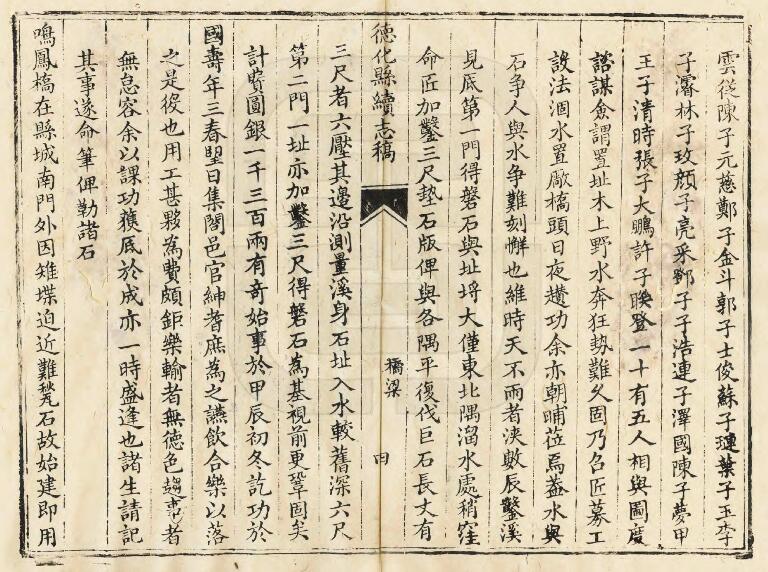 雲從陳子元慈鄭子金斗郭子士俊蘇子璉葉子玉李
子濬林子玫顏子亮采鄧子子浩連子澤國陳子夢甲
王子清時張子大鵬許子映登一十有五人相與圖度
諮謀僉謂置址木上野水奔狂勢難久固乃召匠募工
設法涸水置厰橋頭日夜趲功余亦朝晡莅焉葢水與
石争人與水争難刻懈也維時天不雨者浹數辰鑿溪
見底第一門得磐石與址埒大僅東北隅溜水處稍窪
命匠加鑿三尺墊石版俾與各隅平復伐巨石長丈有
德化縣續志稿
橋梁
四
三尺者六壓其邊沿測量溪身石址入水較舊深六尺
第二門一址亦加鑿三尺得磐石為基視前更鞏固矣
計費圓銀一千三百兩有竒始事於甲辰初冬訖功於
國壽年三春望日集閤邑官紳耆庶為之讌飲合樂以落
之是役也用工甚夥為費頗鉅樂輸者無德色趨事者
無怠容余以課功獲厎於成亦一時盛逢也諸生請記
其事遂命筆俾勒諸石
鳴鳳橋在縣城南門外因雉堞迫近難甃石故始建即用